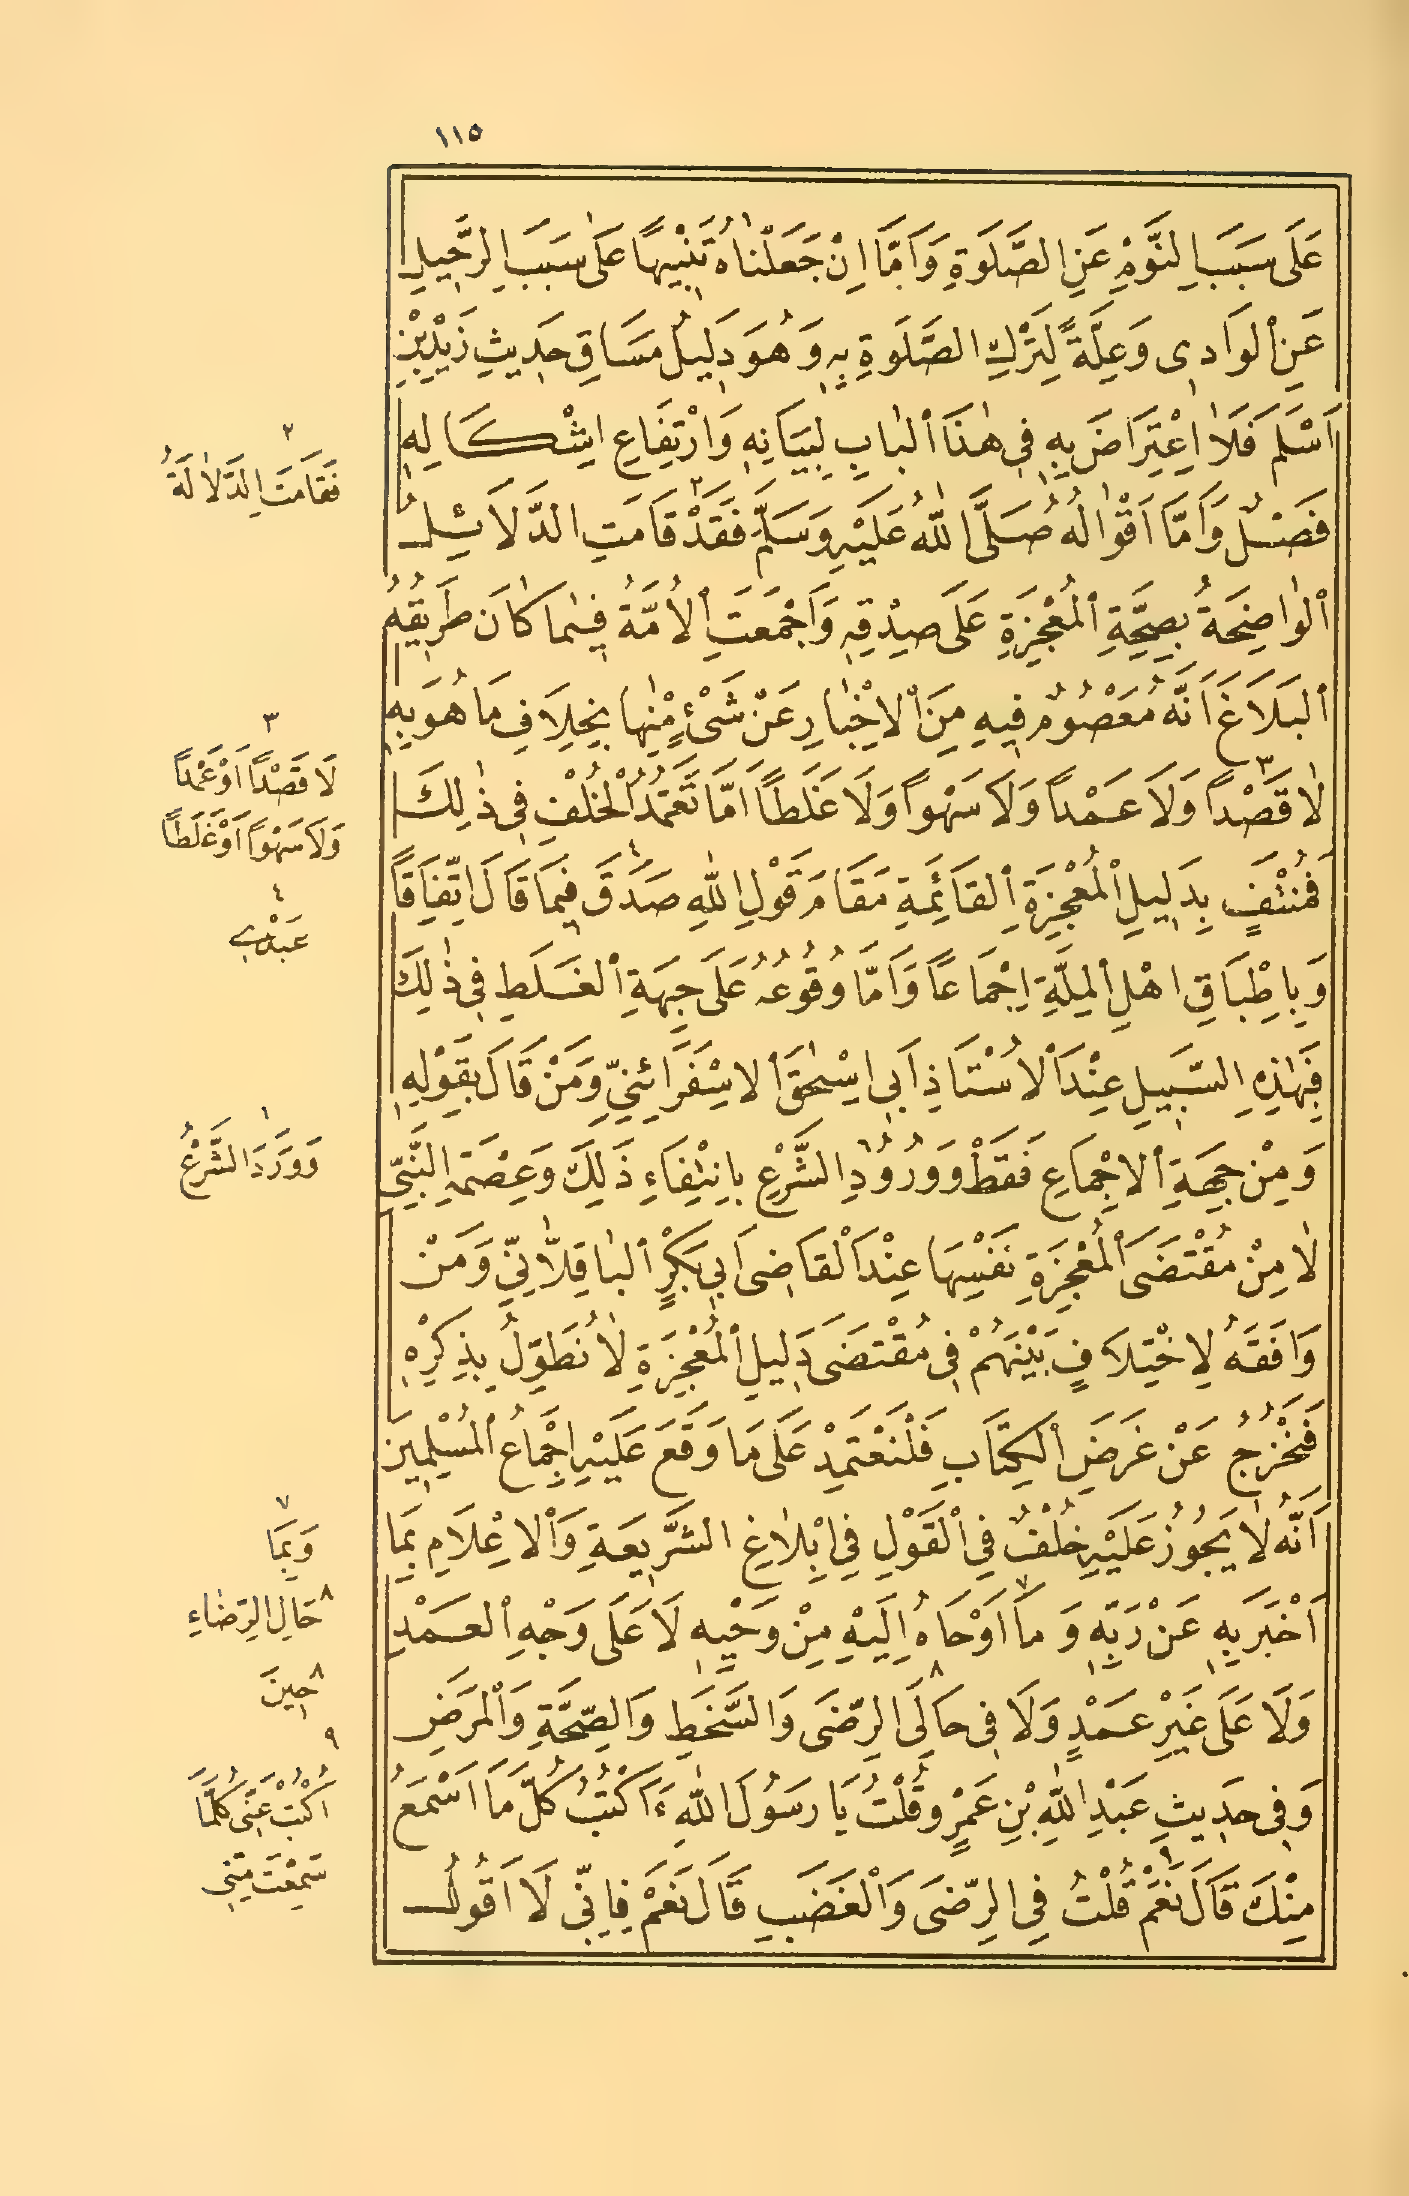 ١١٥
عَلَى سَبَبِ النَّوْمِ عَنِ الصَّلَوةِ وَاَمَّا اِنْ جَعَلْنَاهُ تَنْبِيهًا عَلَى سَبَبِ الرَّحِيلِ
عَنِ الْوَادِى وَعِلَّةً لِتَرْكِ الصَّلَوةِ بِهِ وَهُوَ دَلِيلُ مَسَاقِ حَدِيثِ زَيْدِ بْنِ
اَسْلَمَ فَلَا اِعْتِرَاضَ بِهِ فِى هٰذَا الْبَابِ لِبَيَانِهِ وَارْتِفَاعِ اِشْكَالِهِ
فَصْلٌ وَاَمَّا اَقْوَالُهُ صَلَّى اللّٰهُ عَلَيْهِ وَسَلَّمَ فَقَدْ قَامَتِ الدَّلَائِلُ
الْوَاضِحَةُ بِصِحَّةِ الْمُعْجِزَةِ عَلَى صِدْقِهِ وَاَجْمَعَتِ الْاُمَّةُ فِيمَا كَانَ طَرِيقُهُ
الْبَلَاغَ اَنَّهُ مَعْصُومٌ فِيهِ مِنَ الْاِخْبَارِ عَنْ شَىْءٍ مِنْهَا بِخِلَافِ مَا هُوَ بِهِ
لَا قَصْدًا وَلَا عَمْدًا وَلَا سَهْوًا وَلَا غَلَطًا اَمَّا تَعَمُّدُ الْخُلْفِ فِى ذٰلِكَ
فَمُنْتَفٍ بِدَلِيلِ الْمُعْجِزَةِ الْقَائِمَةِ مَقَامَ قَوْلِ اللّٰهِ صَدَقَ فِيمَا قَالَ اتِّفَاقًا
وَبِاِطْبَاقِ اَهْلِ الْمِلَّةِ اِجْمَاعًا وَاَمَّا وُقُوعُهُ عَلَى جِهَةِ الْغَلَطِ فِى ذٰلِكَ
فَبِهٰذِهِ السَّبِيلِ عِنْدَ الْاُسْتَاذِ اَبِى اِسْحٰقَ الْاِسْفَرَائِنِىِّ وَمَنْ قَالَ بِقَوْلِهِ
وَمِنْ جِهَةِ الْاِجْمَاعِ فَقَطْ وَوُرُودِ الشَّرْعِ بِانْتِفَاءِ ذٰلِكَ وَعِصْمَةِ النَّبِىِّ
لَا مِنْ مُقْتَضَى الْمُعْجِزَةِ نَفْسِهَا عِنْدَ الْقَاضِى اَبِى بَكْرٍ الْبَاقِلَّانِىِّ وَمَنْ
وَافَقَهُ لِاخْتِلَافٍ بَيْنَهُمْ فِى مُقْتَضَى دَلِيلِ الْمُعْجِزَةِ لَا نُطَوِّلُ بِذِكْرِهِ
فَنَخْرُجُ عَنْ غَرَضِ الْكِتَابِ فَلْنَعْتَمِدْ عَلَى مَا وَقَعَ عَلَيْهِ اِجْمَاعُ الْمُسْلِمِينَ
اَنَّهُ لَا يَجُوزُ عَلَيْهِ خُلْفٌ فِى الْقَوْلِ فِى اِبْلَاغِ الشَّرِيعَةِ وَالْاِعْلَامِ بِمَا
اَخْبَرَ بِهِ عَنْ رَبِّهِ وَمَا اَوْحَاهُ اِلَيْهِ مِنْ وَحْيِهِ لَا عَلَى وَجْهِ الْعَمْدِ
وَلَا عَلَى غَيْرِ عَمْدٍ وَلَا فِى حَالَىِ الرِّضَى وَالسَّخَطِ وَالصِّحَّةِ وَالْمَرَضِ
وَفِى حَدِيثِ عَبْدِ اللّٰهِ بْنِ عَمْرٍو قُلْتُ يَا رَسُولَ اللّٰهِ ءَاَكْتُبُ كُلَّ مَا اَسْمَعُ
مِنْكَ قَالَ نَعَمْ قُلْتُ فِى الرِّضَى وَالْغَضَبِ قَالَ نَعَمْ فَاِنِّى لَا اَقُولُ
٢
فَقَامَتِ الدَّلَالَةُ
٣
لَا قَصْدًا اَوْ عَمْدًا
وَلَا سَهْوًا اَوْ غَلَطًا
٤
عَبْدِى
١
وَوَرَدَ الشَّرْعُ
٧
وَبِمَا
٨
حَالِ الرِّضَاءِ
٨
حِينَ
٩
اُكْتُبْ عَنِّى كُلَّمَا
سَمِعْتَ مِنِّى